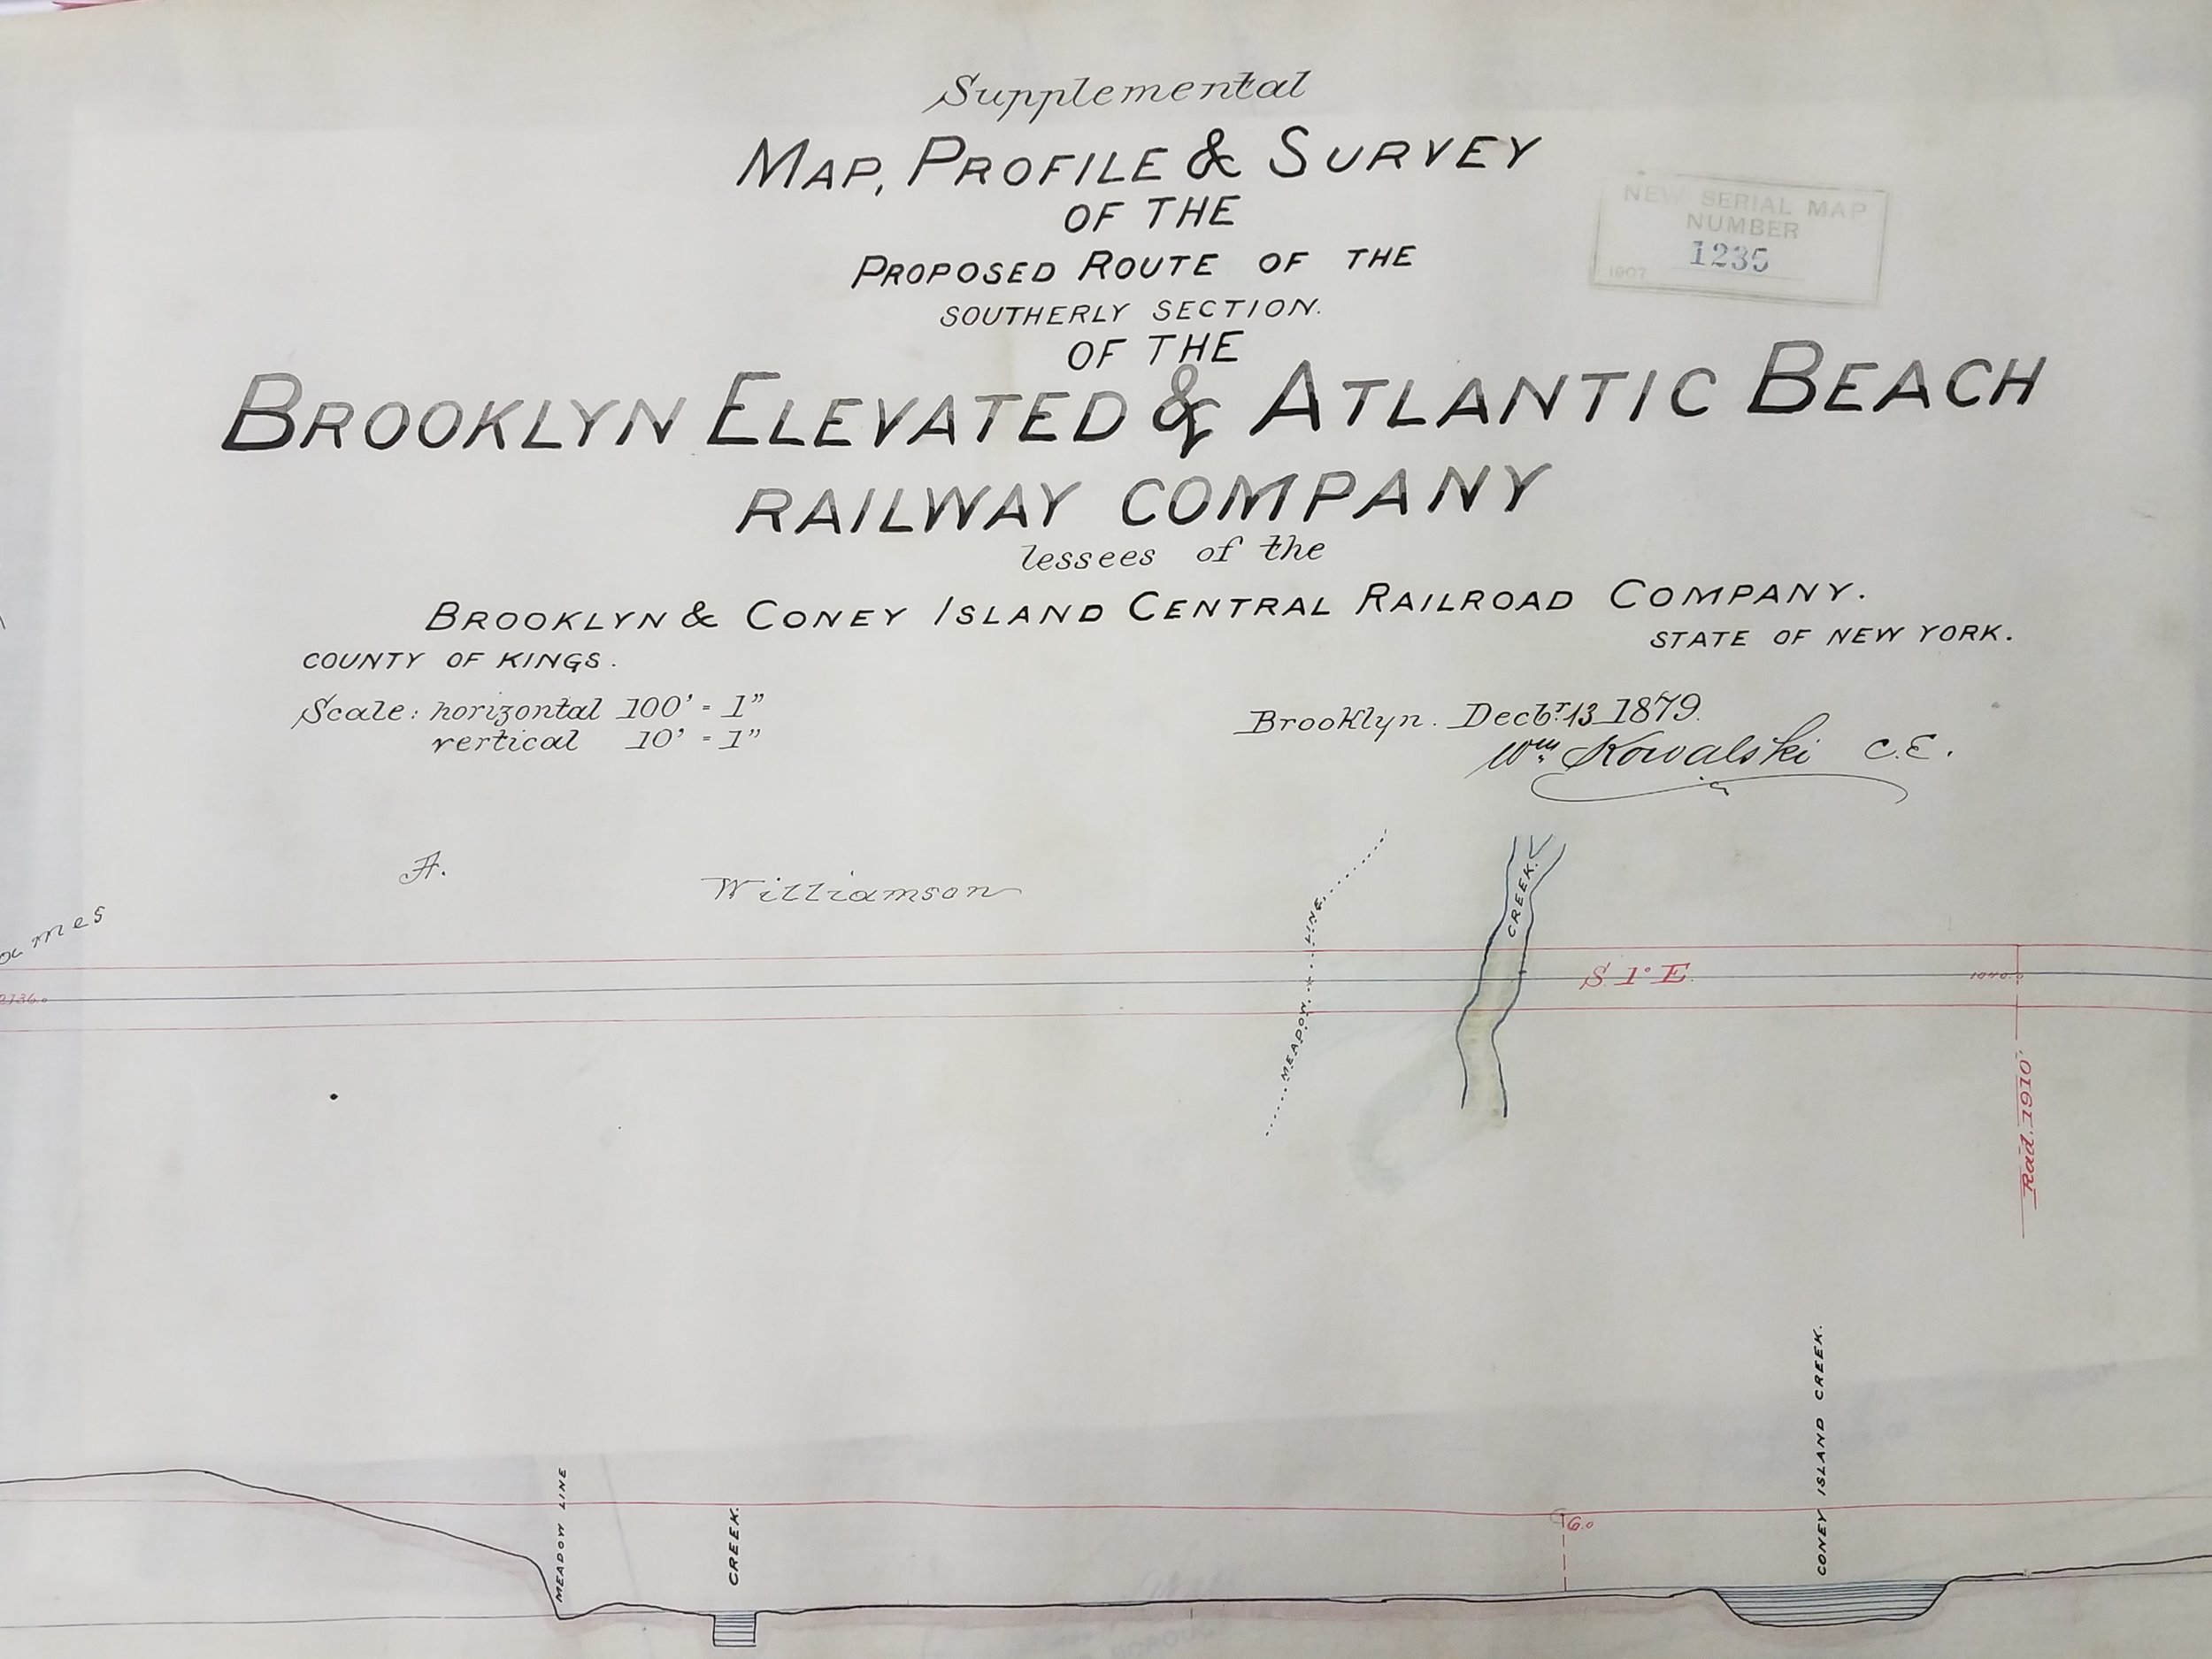 Supplemental
MAP, PROFILE & SURVEY
OF THE
PROPOSED ROUTE OF THE
SOUTHERLY SECTION.
OF THE
BROOKLYN ELEVATED & ATLANTIC BEACH
RAILWAY COMPANY
lessees of the
BROOKLYN & CONEY ISLAND CENTRAL RAILROAD COMPANY.
COUNTY OF KINGS.
STATE OF NEW YORK.
Scale: horizontal 100' = 1"
vertical 10' = 1"
Brooklyn. Decbr. 13 1879.
Wm. Kowalski C.E.
NEW SERIAL MAP
NUMBER
1235
1907
A. Williamson
ames
MEADOW LINE.
CREEK.
S 1° E
Rad. 1910'
MEADOW LINE
CREEK.
6.0
CONEY ISLAND CREEK.